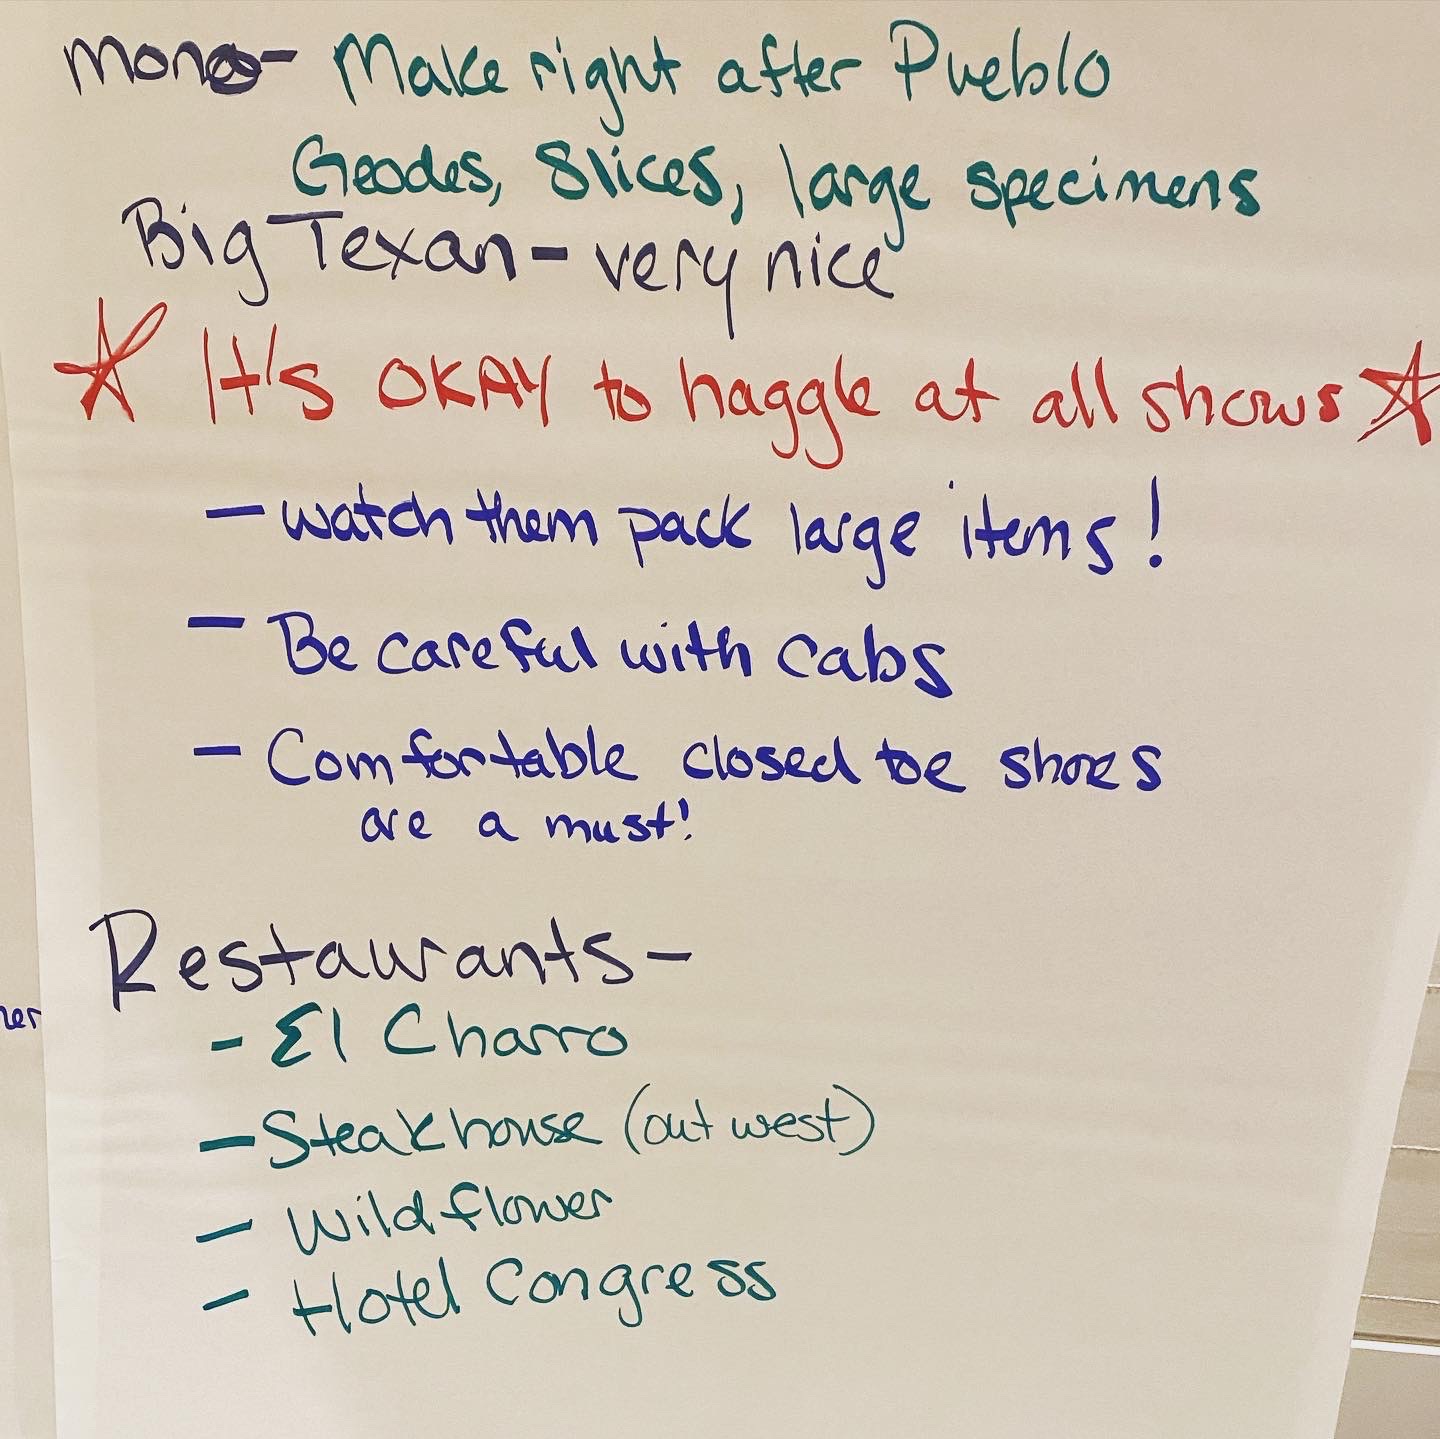 Mono- Make right after Pueblo
Geodes, Slices, large specimens
Big Texan - very nice
It's OKAY to haggle at all shows
- watch them pack large items!
- Be careful with cabs
- Comfortable closed toe shoes
are a must!
Restaurants -
- El Charro
- Steakhouse (out west)
- Wildflower
- Hotel Congress